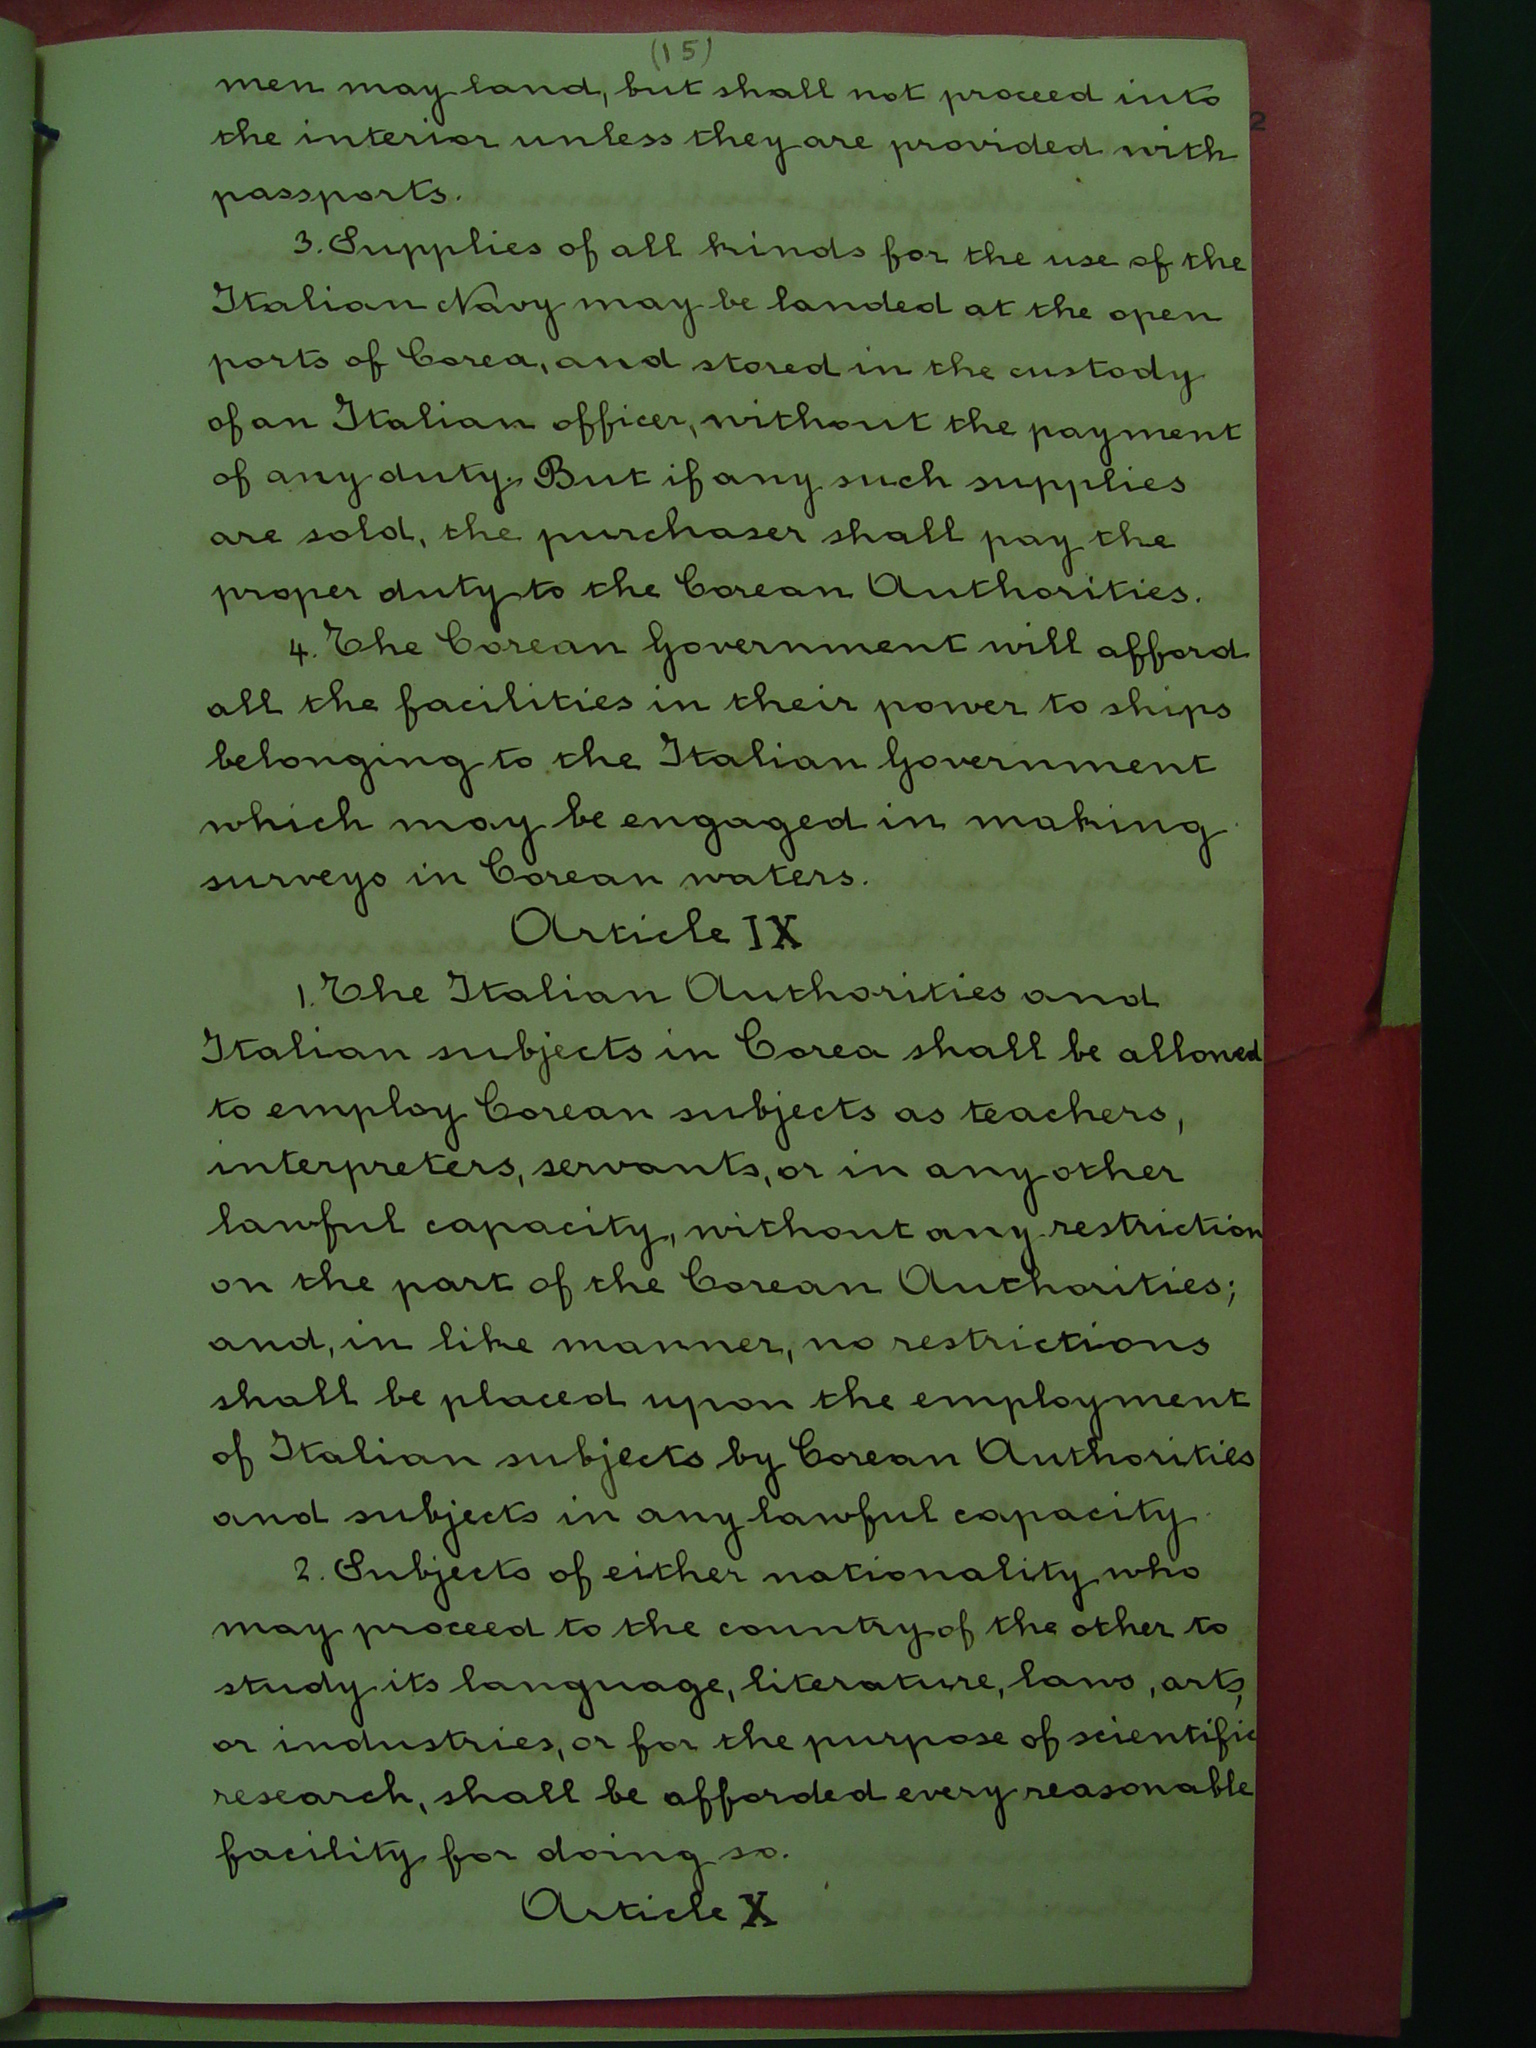 (15)
men may land, but shall not proceed into
the interior unless they are provided with
2
passports.
3. Supplies of all kinds for the use of the
Italian Navy may be landed at the open
ports of Corea, and stored in the custody
of an Italian officer, without the payment
of any duty. But if any such supplies
are sold, the purchaser shall pay the
proper duty to the Corean Authorities.
4. The Corean Government will afford
all the facilities in their power to ships
belonging to the Italian Government
which may be engaged in making
surveys in Corean waters.
Article IX
1. The Italian Authorities and
Italian subjects in Corea shall be allowed
to employ Corean subjects as teachers,
interpreters, servants, or in any other
lawful capacity, without any restriction
on the part of the Corean Authorities;
and, in like manner, no restrictions
shall be placed upon the employment
of Italian subjects by Corean Authorities
and subjects in any lawful capacity.
2. Subjects of either nationality who
may proceed to the country of the other to
study its language, literature, laws, arts,
or industries, or for the purpose of scientific
research, shall be afforded every reasonable
facility for doing so.
Article X